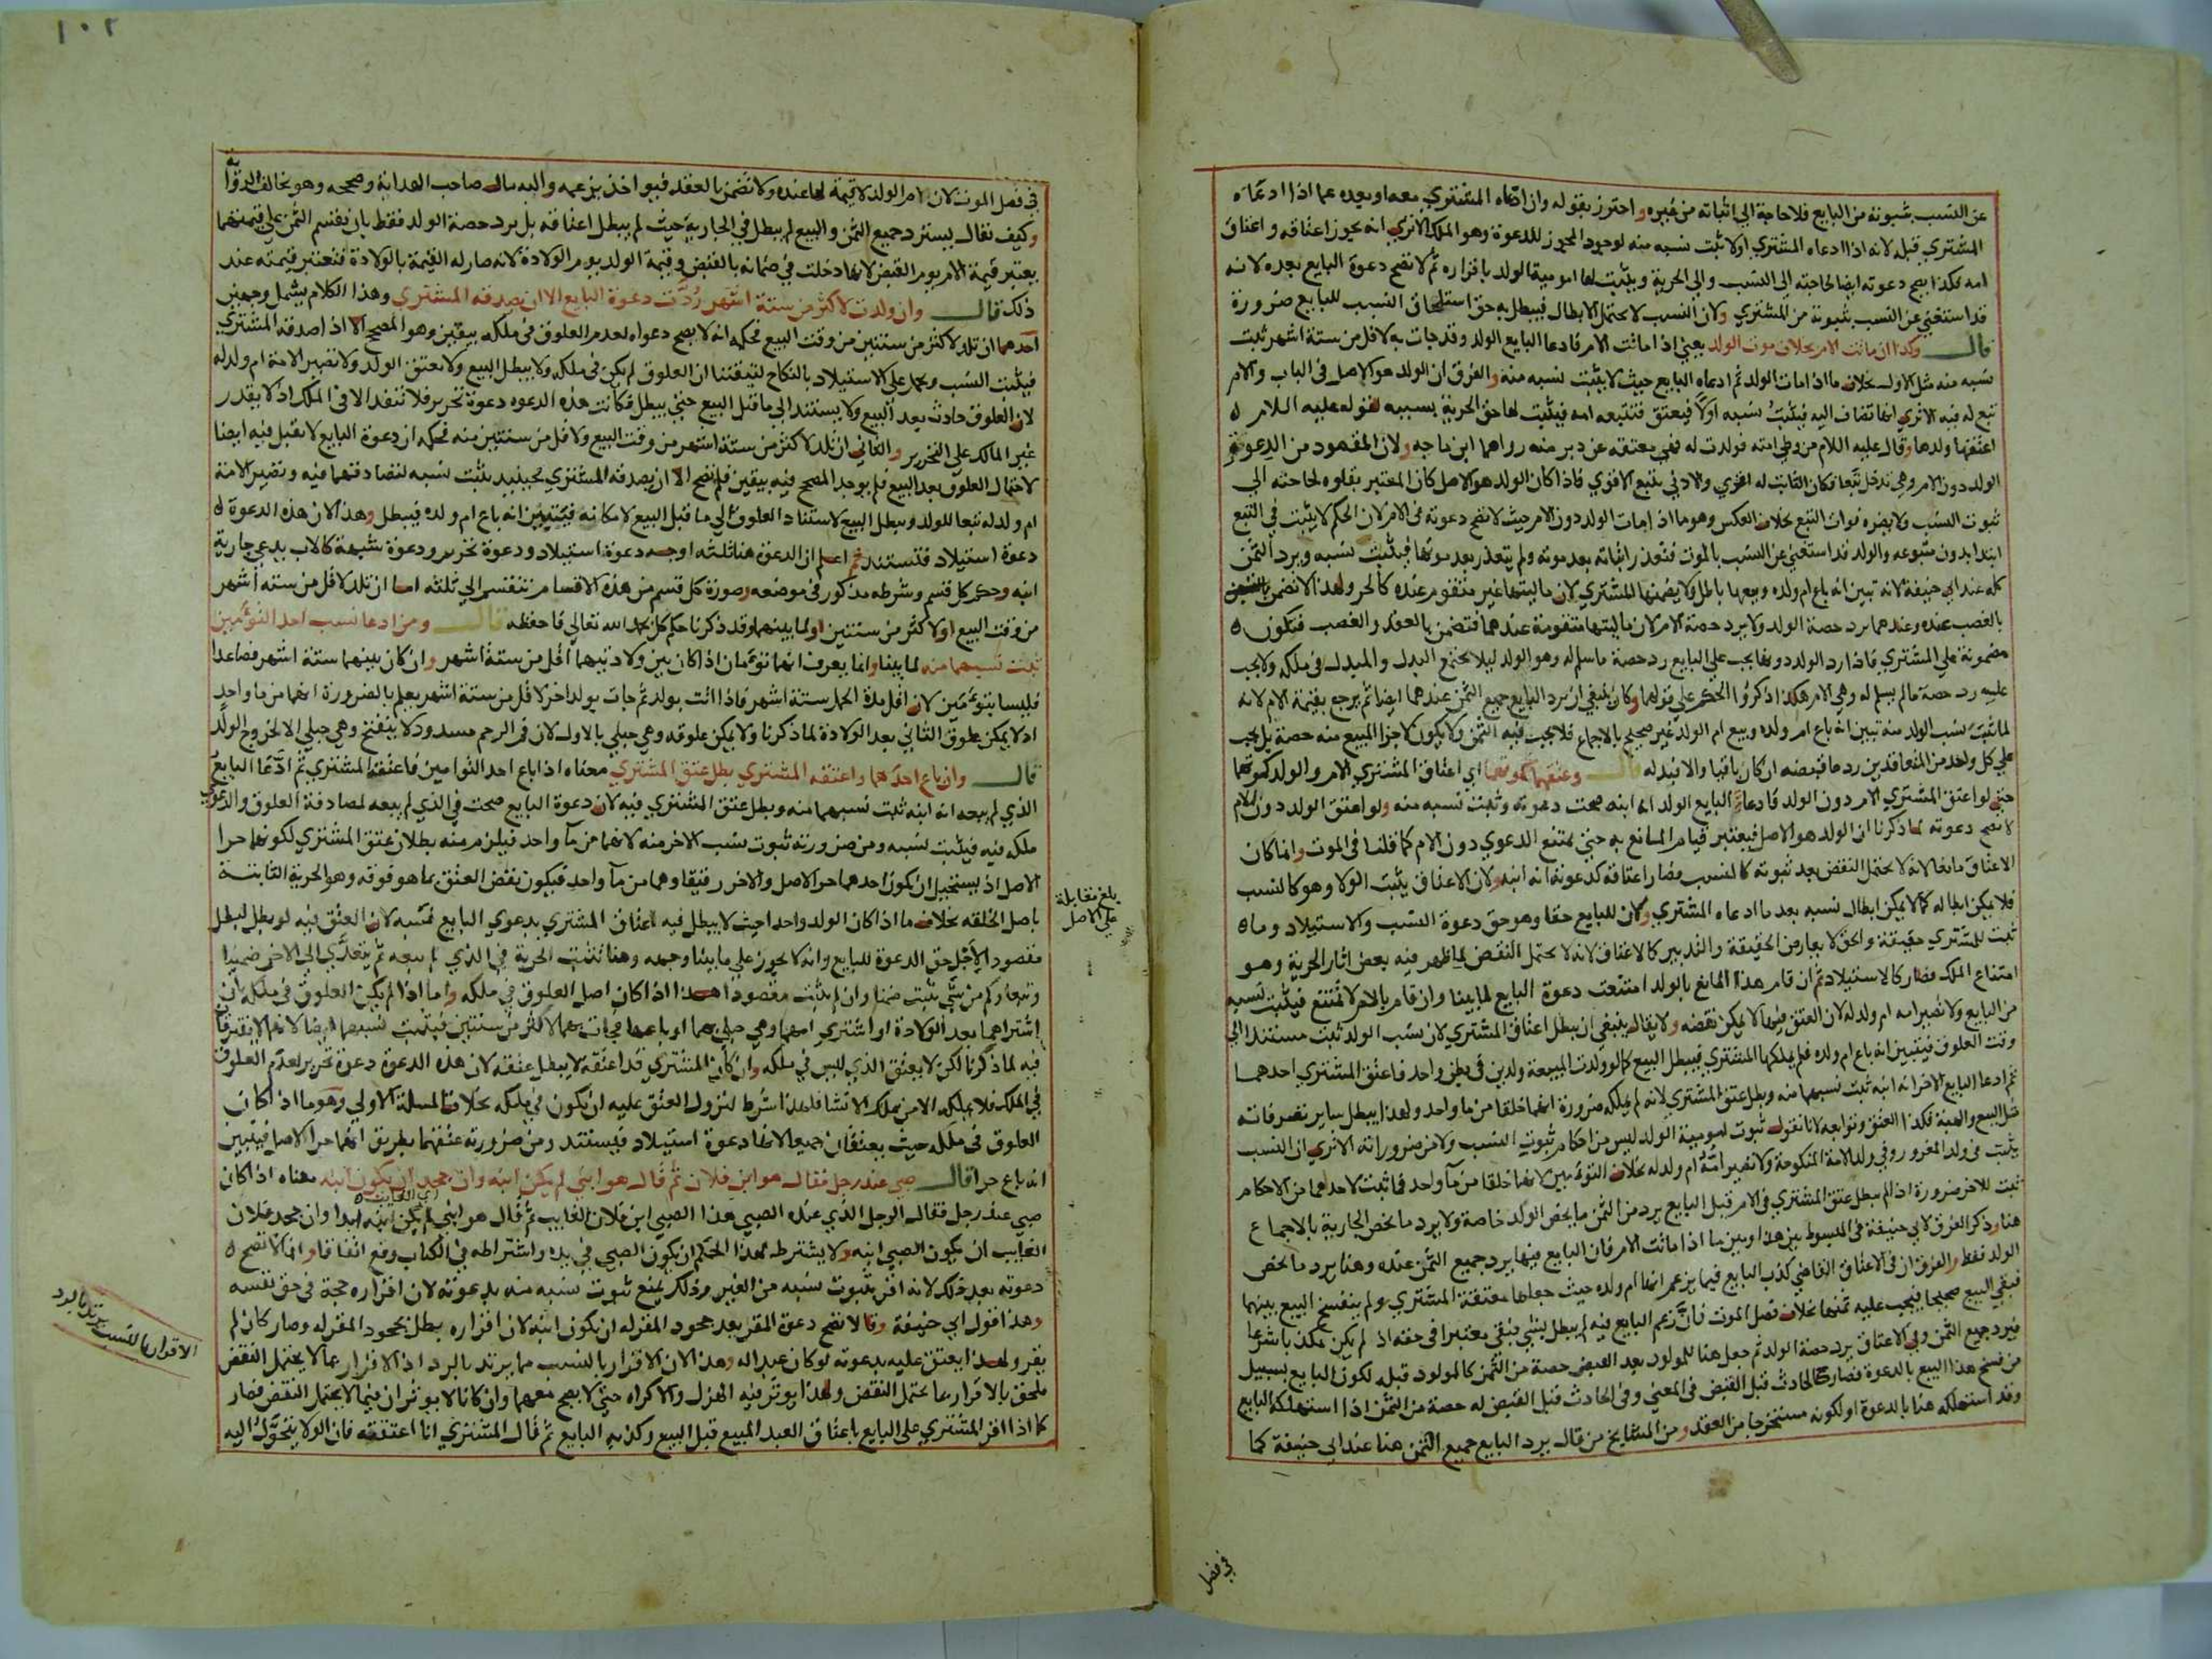 عن النسب بثبوته من البايع فلا حاجة الي اثباته من غيره واحترز بقوله وان ادعاه المشتري معه او بعده عما اذا ادعاه
المشتري قبله لانه اذا ادعاه المشتري اولا ثبت نسبه منه لوجود المجوز للدعوة وهو الملك الا تري انه يجوز اعتاقه واعتاق
امه فكذا يصح دعوته ايضا لحاجته الي النسب والي الحرية ويثبت لها امومية الولد باقراره ثم لا تصح دعوة البايع بعده لانه
قد استغني عن النسب بثبوته من المشتري ولان النسب لا يحتمل الابطال فيبطل به حق استلحاق النسب للبايع ضرورة
قال وكذا ان ماتت الام بخلاف موت الولد يعني اذا ماتت الام فادعا البايع الولد وقد جات به لاقل من ستة اشهر ثبت
نسبه منه مثل الاول بخلاف ما اذا مات الولد ثم ادعاه البايع حيث لا يثبت نسبه منه والفرق ان الولد هو الاصل في الباب والام
تبع له فيه الا تري انها تضاف اليه فيثبت نسبه اولا فيعتق فتتبعه امه فيثبت لها حق الحرية بسببه لقوله عليه السلام
اعتقها ولدها وقال عليه السلام من وطي امته فولدت له فهي معتقة عن دبر منه رواهما ابن ماجه ولان المقصود من الدعوة
الولد دون الام وهي تدخل تبعا فكان الثابت له اقوي والادني يتبع الاقوي فاذا كان الولد هو الاصل كان المعتبر بقاوه لحاجته الي
ثبوت النسب ولا يضره فوات التبع بخلاف العكس وهو ما اذا مات الولد دون الام حيث لا تصح دعوته في الام لان الحكم لا يثبت في التبع
ابتدا بدون متبوعه والولد قد استغني عن النسب بالموت فتعذر اثباته بعد موته ولم يتعذر بعد موتها فيثبت نسبه ويرد الثمن
كله عند ابي حنيفة لانه تبين انه باع ام ولده وبيعها باطل ولا يضمنها المشتري لان ماليتها غير متقوم عنده كالحر ولهذا لا تضمن
بالغصب عنده وعندهما يرد حصة الولد ولا يرد حصة الام لان ماليتها متقومة عندهما فتضمن بالعقد والغصب فتكون
مضمونة علي المشتري فاذا رد الولد دونها يجب علي البايع رد حصة ما سلم له وهو الولد ليلا يجتمع البدل والمبدل في ملكه ولا يجب
عليه رد حصة ما لم يسلم له وهي الام هكذا ذكروا الحكم علي قولهما وكان ينبغي ان يرد البايع جميع الثمن عندهما ايضا ثم يرجع بقيمة الام لانه
لما ثبت نسب الولد منه تبين انه باع ام ولده وبيع ام الولد غير صحيح بالاجماع فلا يجب فيه الثمن ولا يكون لاجزا المبيع منه حصة بل يجب
علي كل واحد من المتعاقدين رد ما قبضه ان كان باقيا والا فبدله قال وعتقهما كموتهما اي اعتاق المشتري الام والولد كموتهما
حتي لو اعتق المشتري الام دون الولد فادعا البايع الولد انه ابنه صحت دعوته وثبت نسبه منه ولو اعتق الولد دون الام
لا تصح دعوته لما ذكرنا ان الولد هو الاصل فيعتبر قيام المانع به حتي يمتنع الدعوي دون الام كما قلنا في الموت وانما كان
الاعتاق مانعا لانه لا يحتمل النقض بعد ثبوته كالنسب فصار اعتاقه كدعوته انه ابنه ولان الاعتاق يثبت الولا وهو كالنسب
فلا يمكن ابطاله كما لا يمكن ابطال نسبه بعد ما ادعاه المشتري ولان للبايع حقا وهو حق دعوة النسب والاستيلاد وما
ثبت للمشتري حقيقة والحق لا يعارض الحقيقة والتدبير كالاعتاق لانه لا يحتمل النقض لما ظهر فيه بعض اثار الحرية وهو
امتناع الملك فصار كالاستيلاد ثم ان قام هذا المانع بالولد امتنعت دعوة البايع لما بينا وان قام بالام لا تمتنع فيثبت نسبه
من البايع ولا تصير امه ام ولد له لان العتق فيها لا يمكن نقضه ولا يقال ينبغي ان يبطل اعتاق المشتري لان نسب الولد ثبت مستندا الي
وقت العلوق فيتبين انه باع ام ولده فلم يملكها المشتري فيبطل البيع كما لو ولدت المبيعة ولدين في بطن واحد فاعتق المشتري احدهما
ثم ادعا البايع الاخر انه ابنه ثبت نسبهما منه وبطل عتق المشتري لانه لم يملكه ضرورة انهما خلقا من ما واحد ولهذا يبطل ساير تصرفاته
مثل البيع والهبة فكذا العتق وتوابعه لانا نقول ثبوت امومية الولد ليس من احكام ثبوت النسب ولا من ضروراته الا تري ان النسب
يثبت في ولد المغرور وفي ولد الامة المنكوحة ولا تصير امه ام ولد له بخلاف التوءمين لانهما خلقا من ما واحد فما ثبت لاحدهما من الاحكام
ثبت للاخر ضرورة اذا لم يبطل عتق المشتري في الام قبل البايع يرد من الثمن ما يخص الولد خاصة ولا يرد ما يخص الجارية بالاجماع
هنا وذكر الفرق لابي حنيفة في المبسوط بين هذا وبين ما اذا ماتت الام فان البايع فيها يرد جميع الثمن عنده وهنا يرد ما يخص
الولد فقط والفرق ان في الاعتاق القاضي كذب البايع فيما يزعم انها ام ولده حيث جعلها معتقة المشتري ولم ينفسخ البيع بينهما
فبقي البيع صحيحا فيجب عليه ثمنها بخلاف فصل الموت فان زعم البايع فيه لم يبطل بشي فبقي معتبرا في حقه اذ لم يكن مكذبا شرعا
فيرد جميع الثمن وفي الاعتاق يرد حصة الولد ثم جعل هنا للمولود بعد القبض حصة من الثمن كالمولود قبله لكون البايع بسبيل
من فسخ هذا البيع بالدعوة فصار كالحادث قبل القبض في المعني وفي الحادث قبل القبض له حصة من الثمن اذا استهلكه البايع
وقد استهلكه هنا بالدعوة او لكونه مستخرجا من العقد ومن المشايخ من قال يرد البايع جميع الثمن هنا عند ابي حنيفة كما
في فصل
١٠٢
في فصل الموت لان ام الولد لا قيمة لها عنده ولا تضمن بالعقد فيواخذ بزعمه واليه مال صاحب الهداية وصححه وهو يخالف الرواية
وكيف يقال يسترد جميع الثمن والبيع لم يبطل في الجارية حيث لم يبطل اعتاقه بل يرد حصة الولد فقط بان يقسم الثمن علي قيمتهما
يعتبر قيمة الام يوم القبض لانها دخلت في ضمانه بالقبض وقيمة الولد يوم الولادة لانه صار له القيمة بالولادة فتعتبر قيمته عند
ذلك قال وان ولدت لاكثر من ستة اشهر ردت دعوة البايع الا ان يصدقه المشتري وهذا الكلام يشمل وجهين
احدهما ان تلد لاكثر من سنتين من وقت البيع فحكمه انه لا يصح دعواه لعدم العلوق في ملكه بيقين وهو المصحح الا اذا صدقه المشتري
فيثبت النسب ويحمل علي الاستيلاد بالنكاح لتيقننا ان العلوق لم يكن في ملكه ولا يبطل البيع ولا يعتق الولد ولا تصير الامة ام ولد له
لان العلوق حادث بعد البيع ولا يستند الي ما قبل البيع حتي يبطل فكانت هذه الدعوه دعوة تحرير فلا تنفذ الا في الملك اذ لا يقدر
غير المالك علي التحرير والثاني ان تلد لاكثر من ستة اشهر من وقت البيع ولاقل من سنتين منه فحكمه ان دعوة البايع لا تقبل فيه ايضا
لاحتمال العلوق بعد البيع فلم يوجد المصحح فيه بيقين فلم تصح الا ان يصدقه المشتري فحينيذ يثبت نسبه لتصادقهما فيه وتصير الامة
ام ولد له تبعا للولد ويبطل البيع لاستناد العلوق الي ما قبل البيع لامكانه فيتبين انه باع ام ولده فيبطل وهذا لان هذه الدعوة
دعوة استيلاد فتستند ثم اعلم ان الدعوة هنا ثلثه اوجه دعوة استيلاد ودعوة تحرير ودعوة شبهة كالاب يدعي جارية
ابنه وحكم كل قسم وشرطه مذكور في موضعه وصورة كل قسم من هذه الاقسام تنقسم الي ثلثه اما ان تلد لاقل من سته اشهر
من وقت البيع او لاكثر من سنتين او لما بينهما وقد ذكرنا حكم كل بحمد الله تعالي فاحفظه قال ومن ادعا نسب احد التوءمين
ثبت نسبهما منه لما بينا وانما يعرف انهما توءمان اذا كان بين ولادتيهما اقل من ستة اشهر وان كان بينهما ستة اشهر فصاعدا
فليسا بتوءمين لان اقل مدة الحمل ستة اشهر فاذا اتت بولد ثم جات بولد اخر لاقل من ستة اشهر يعلم بالضرورة انهما من ما واحد
اذ لا يمكن علوق الثاني بعد الولادة لما ذكرنا ولا يمكن علوقه وهي حبلي بالاول لان فم الرحم مسدود لا ينفتح وهي حبلي الا لخروج الولد
قال وان باع احدهما واعتقه المشتري بطل عتق المشتري معناه اذا باع احد التوامين فاعتقه المشتري ثم ادعا البايع
الذي لم يبعه انه ابنه ثبت نسبهما منه وبطل عتق المشتري فيه لان دعوة البايع صحت في الذي لم يبعه لمصادفة العلوق والدعوي
ملكه فيه فيثبت نسبه ومن ضرورته ثبوت نسب الاخر منه لانهما من ما واحد فيلزم منه بطلان عتق المشتري لكونهما حرا
الاصل اذ يستحيل ان يكون احدهما حر الاصل والاخر رقيقا وهما من ما واحد فيكون نقض العتق بما هو فوقه وهو الحرية الثابتة
باصل الخلقه بخلاف ما اذا كان الولد واحدا حيث لا يبطل فيه اعتاق المشتري بدعوي البايع نسبه لان العتق فيه لو بطل لبطل
مقصودا لاجل حق الدعوة للبايع وانه لا يجوز علي ما بينا وجهه وهنا تثبت الحرية في الذي لم يبعه ثم يتعدي الي الاخر ضمنا
وتبعا وكم من شي يثبت ضمنا وان لم يثبت مقصودا هذا اذا كان اصل العلوق في ملكه واما اذا لم يكن العلوق في ملكه بان
اشتراهما بعد الولادة او اشتري امهما وهي حبلي بهما او باعها فجات بهما لاكثر من سنتين فيثبت نسبهما ايضا لانهما لا يفترقان
فيه لما ذكرنا لكن لا يعتق الذي ليس في ملكه وان كان المشتري قد اعتقه لا يبطل عتقه لان هذه الدعوة دعوة تحرير لعدم العلوق
في الملك فلا يملكه الا من يملك الانشا فلهذا شرط لنزول العتق عليه ان يكون في ملكه بخلاف المسلة الاولي وهو ما اذا كان
العلوق في ملكه حيث يعتقان جميعا لانها دعوة استيلاد فيستند ومن ضرورته عتقهما بطريق انهما حرا الاصل فيتبين
انه باع حرا قال صبي عند رجل فقال هو ابن فلان ثم قال هو ابني لم يكن ابنه وان جحد ان يكون ابنه معناه اذا كان
صبي عند رجل فقال الرجل الذي عنده الصبي هذا الصبي ابن فلان الغايب ثم قال هو ابني لم يكن ابنه ابدا وان جحد فلان
الغايب ان يكون الصبي ابنه ولا يشترط لهذا الحكم ان يكون الصبي في يده واشتراطه في الكتاب وقع اتفاقا وانما لا تصح
دعوته بعد ذلك لانه اقر بثبوت نسبه من الغير وذلك يمنع ثبوت نسبه منه بدعوته لان اقراره حجة في حق نفسه
وهذا قول ابي حنيفة وقالا تصح دعوة المقر بعد جحود المقر له ان يكون ابنه لان اقراره بطل بجحود المقر له وصار كان لم
يقر ولهذا يعتق عليه بدعوته لو كان عبدا له وهذا لان الاقرار بالنسب مما يرتد بالرد اذ الاقرار بما لا يحتمل النقض
ملحق بالاقرار بما يحتمل النقض ولهذا يوثر فيه الهزل والاكراه حتي لا يصح معهما وان كانا لا يوثران فيما لا يحتمل النقض فصار
كما اذا اقر المشتري علي البايع باعتاق العبد المبيع قبل البيع وكذبه البايع ثم قال المشتري انا اعتقته فان الولا يتحول اليه
بلغ مقابلة
علي الاصل
الاقرار بالنسب يرتد بالرد